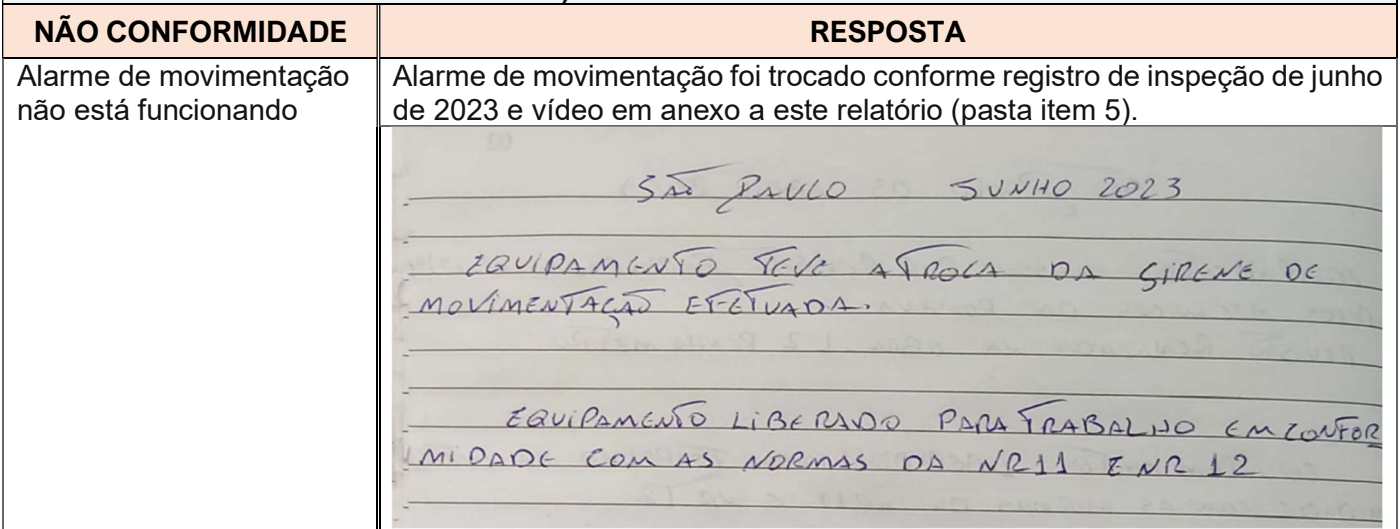 NÃO CONFORMIDADE
RESPOSTA
Alarme de movimentação
não está funcionando
Alarme de movimentação foi trocado conforme registro de inspeção de junho
de 2023 e vídeo em anexo a este relatório (pasta item 5).
SÃO PAULO JUNHO 2023
EQUIPAMENTO TEVE A TROCA DA SIRENE DE
MOVIMENTAÇÃO EFETUADA.
EQUIPAMENTO LIBERADO PARA TRABALHO EM CONFOR
MIDADE COM AS NORMAS DA NR11 E NR 12